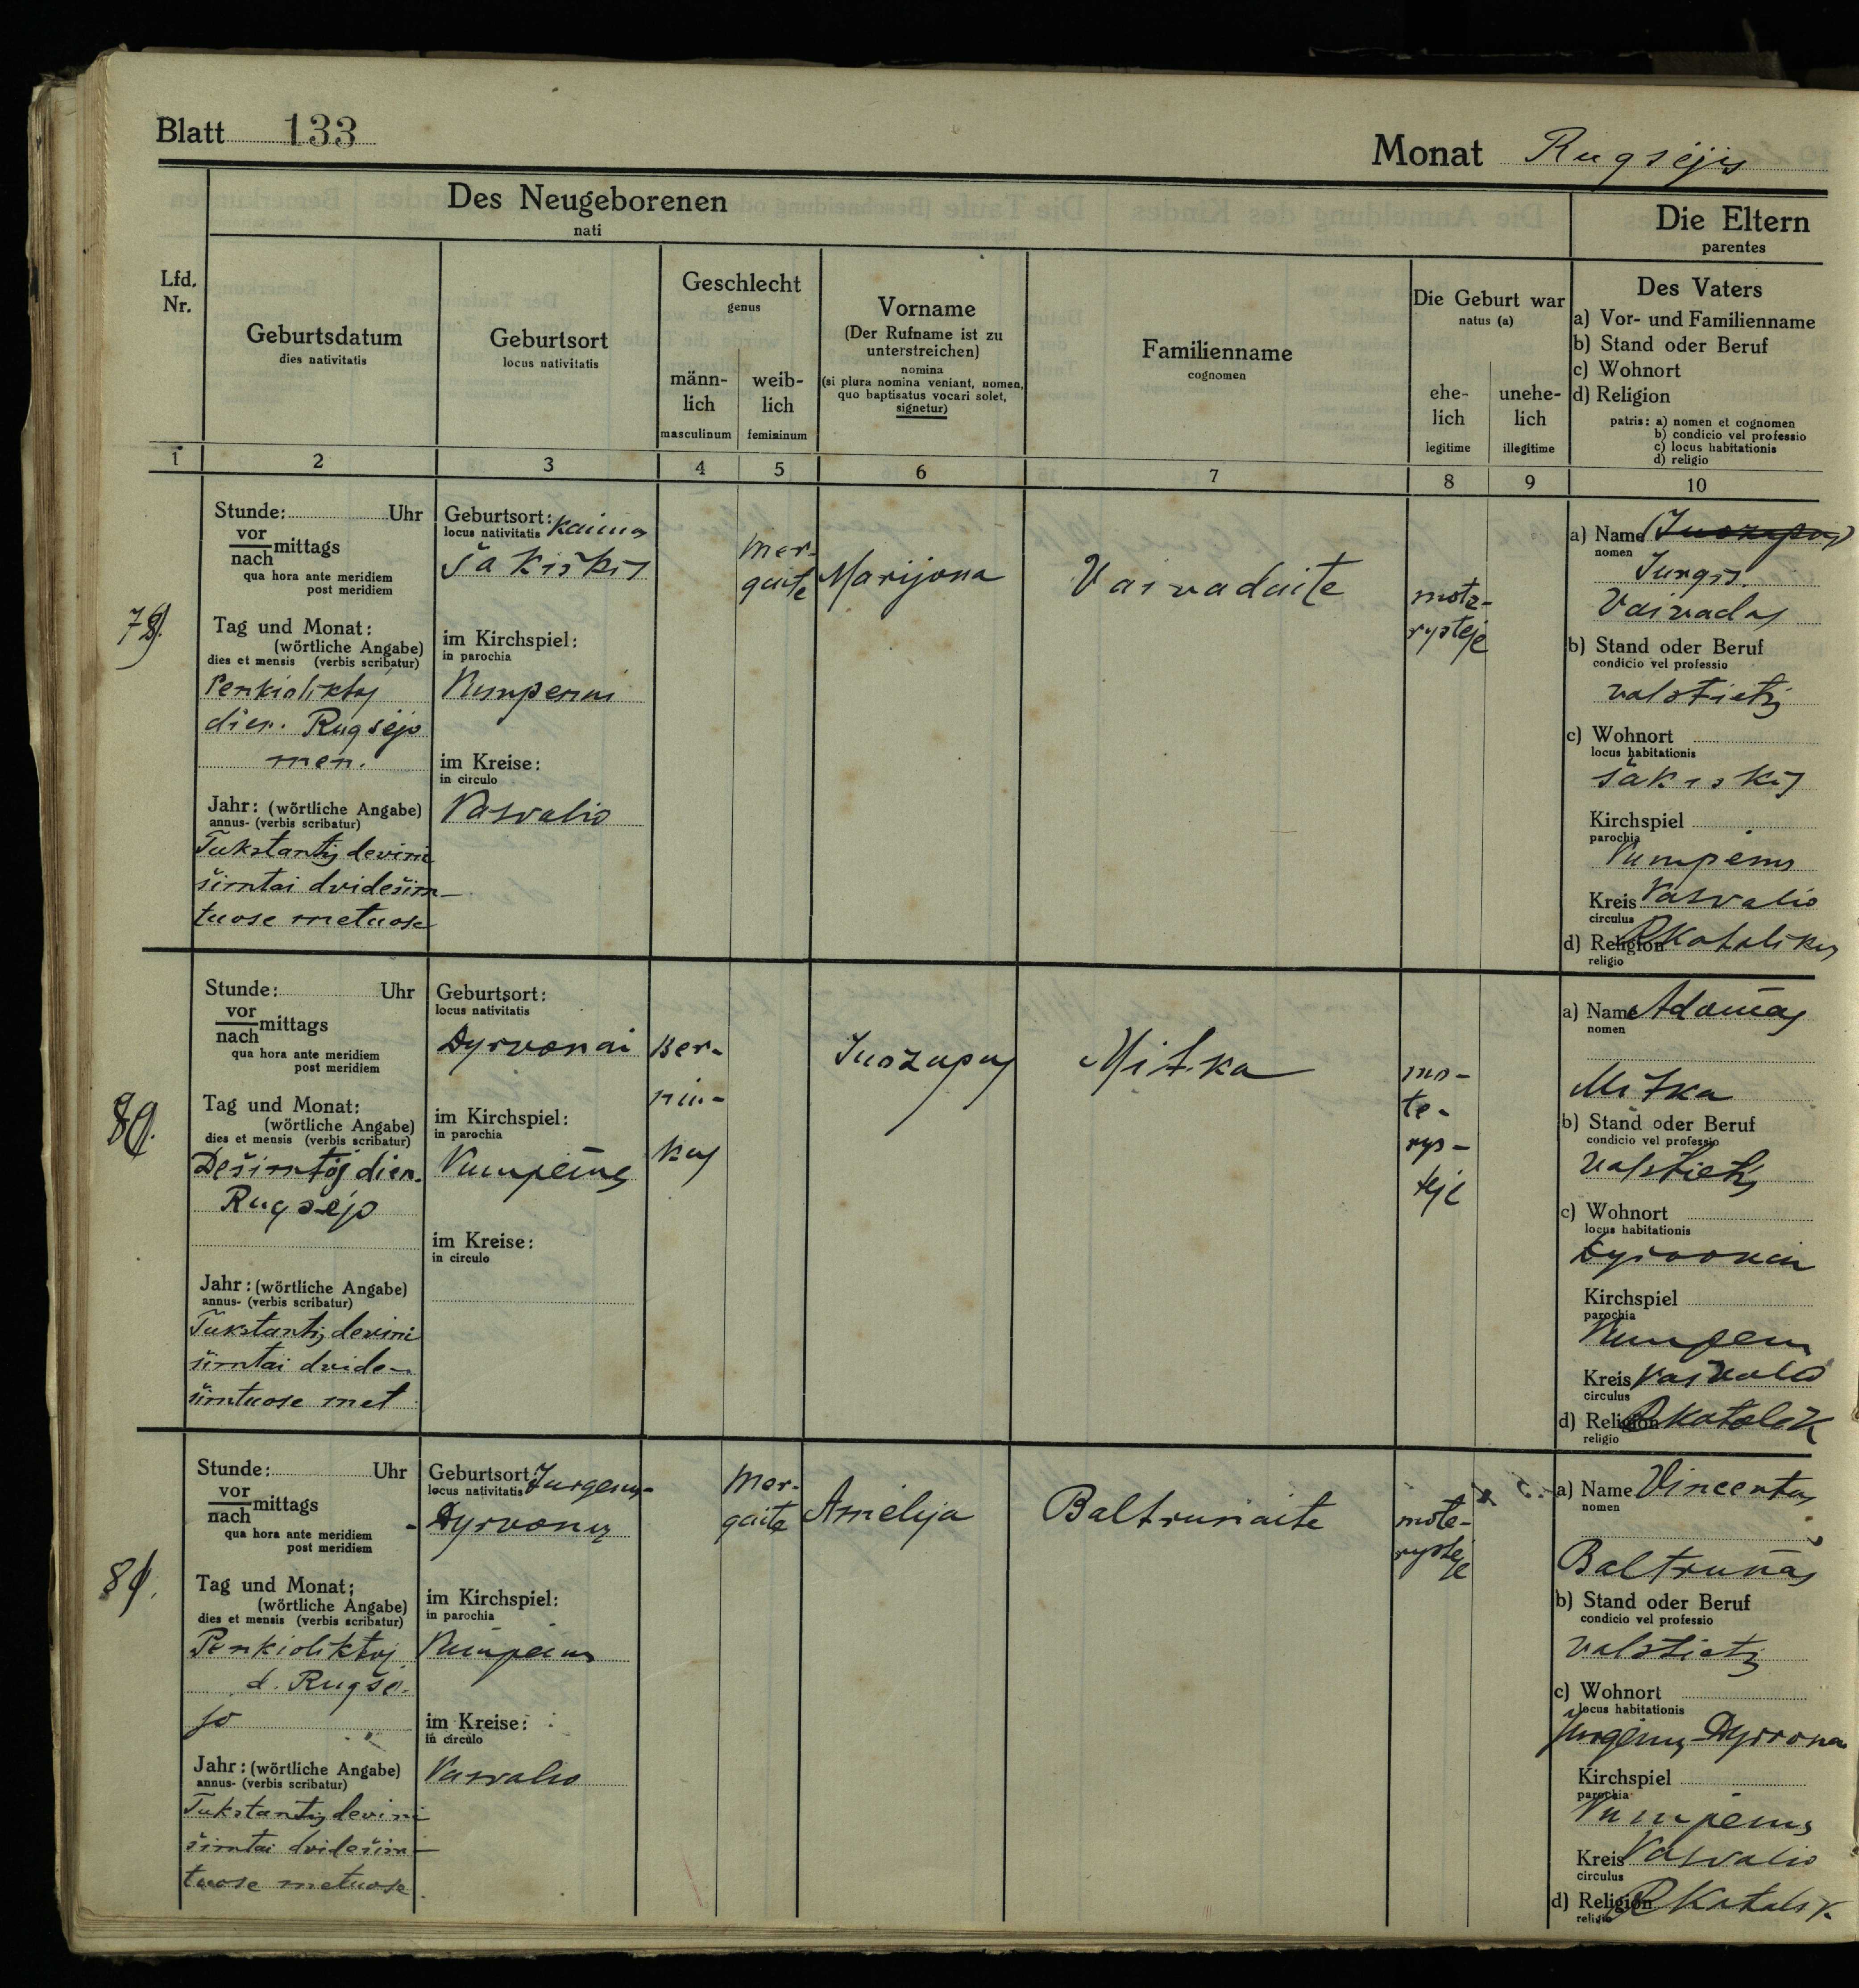 Blatt 133
Monat Rugsėjis
Des Neugeborenen
nati
Die Eltern
parentes
Lfd.
Nr.
Geburtsdatum
dies nativitatis
Geburtsort
locus nativitatis
Geschlecht
genus
männ-
lich
masculinum
weib-
lich
femininum
Vorname
(Der Rufname ist zu
unterstreichen)
nomina
(si plura nomina veniant, nomen,
quo baptisatus vocari solet,
signetur)
Familienname
cognomen
Die Geburt war
natus (a)
ehe-
lich
legitime
unehe-
lich
illegitime
Des Vaters
a) Vor- und Familienname
b) Stand oder Beruf
c) Wohnort
d) Religion
patris: a) nomen et cognomen
b) condicio vel professio
c) locus habitationis
d) religio
1 2 3 4 5 6 7 8 9 10
Stunde: Uhr
vor
nach mittags
qua hora ante meridiem
post meridiem
Tag und Monat:
(wörtliche Angabe)
dies et mensis (verbis scribatur)
Penkioliktoj
dien. Rugsėjo
men.
Jahr: (wörtliche Angabe)
annus- (verbis scribatur)
Tukstantis devini
šimtai dvidešim-
tuose metuose
Geburtsort:
locus nativitatis Kaimas
Šakiškis
im Kirchspiel:
in parochia
im Kreise:
in circulo
Vasvalio
Mer-
gaite
Marijona
Vaivadaite
mote-
rystėje
a) Name Juozapas
nomen
Jurgis
Vaivadas
b) Stand oder Beruf
condicio vel professio
valstietis
c) Wohnort
locus habitationis
Šakiskis
Kirchspiel
parochia
Kreis Vasvalio
circulus
d) Religion R Katalikas
religio
80.
Stunde: Uhr
vor
nach mittags
qua hora ante meridiem
post meridiem
Tag und Monat:
(wörtliche Angabe)
dies et mensis (verbis scribatur)
Dešimtoj dien.
Rugsėjo
Jahr: (wörtliche Angabe)
annus- (verbis scribatur)
Tukstantis devini
šimtai dvide-
šimtuose met
Geburtsort:
locus nativitatis
Dyrvonai
im Kirchspiel:
in parochia
im Kreise:
in circulo
Ber-
niu-
kas
Juozapas
Mitka
mo-
te-
rys-
teje
a) Name Adomas
nomen
Mitka
b) Stand oder Beruf
condicio vel professio
valstietis
c) Wohnort
locus habitationis
Dyrvonai
Kirchspiel
parochia
Kreis Vasvalio
circulus
d) Religion R Katalik
religio
81.
Stunde: Uhr
vor
nach mittags
qua hora ante meridiem
post meridiem
Tag und Monat:
(wörtliche Angabe)
dies et mensis (verbis scribatur)
Penkioliktoj
d. Rugsė-
jo
Jahr: (wörtliche Angabe)
annus- (verbis scribatur)
Tukstantis devini
šimtai dvidešim-
tuose metuose
Geburtsort:
locus nativitatis
Dyrvonų
im Kirchspiel:
in parochia
im Kreise:
in circulo
Vasvalio
Mer-
gaite
Amelija
Baltrunaite
mote-
rysteje
a) Name Vincentas
nomen
Baltrunas
b) Stand oder Beruf
condicio vel professio
valstietis
c) Wohnort
locus habitationis
Kirchspiel
parochia
Kreis Vasvalio
circulus
d) Religion R Katalik.
religio